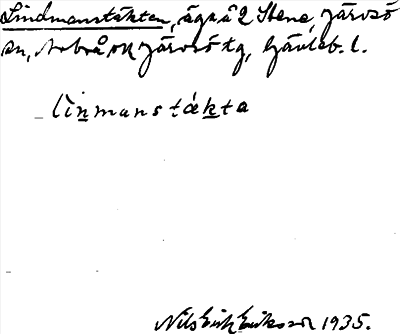 Lindmanstäkten, äga å 2 Stene, Järvsö
sn, Arbrå ok Järvsö tg, Gävleb. l.
linmanstäkta
Nils Erik Eriksson 1935.